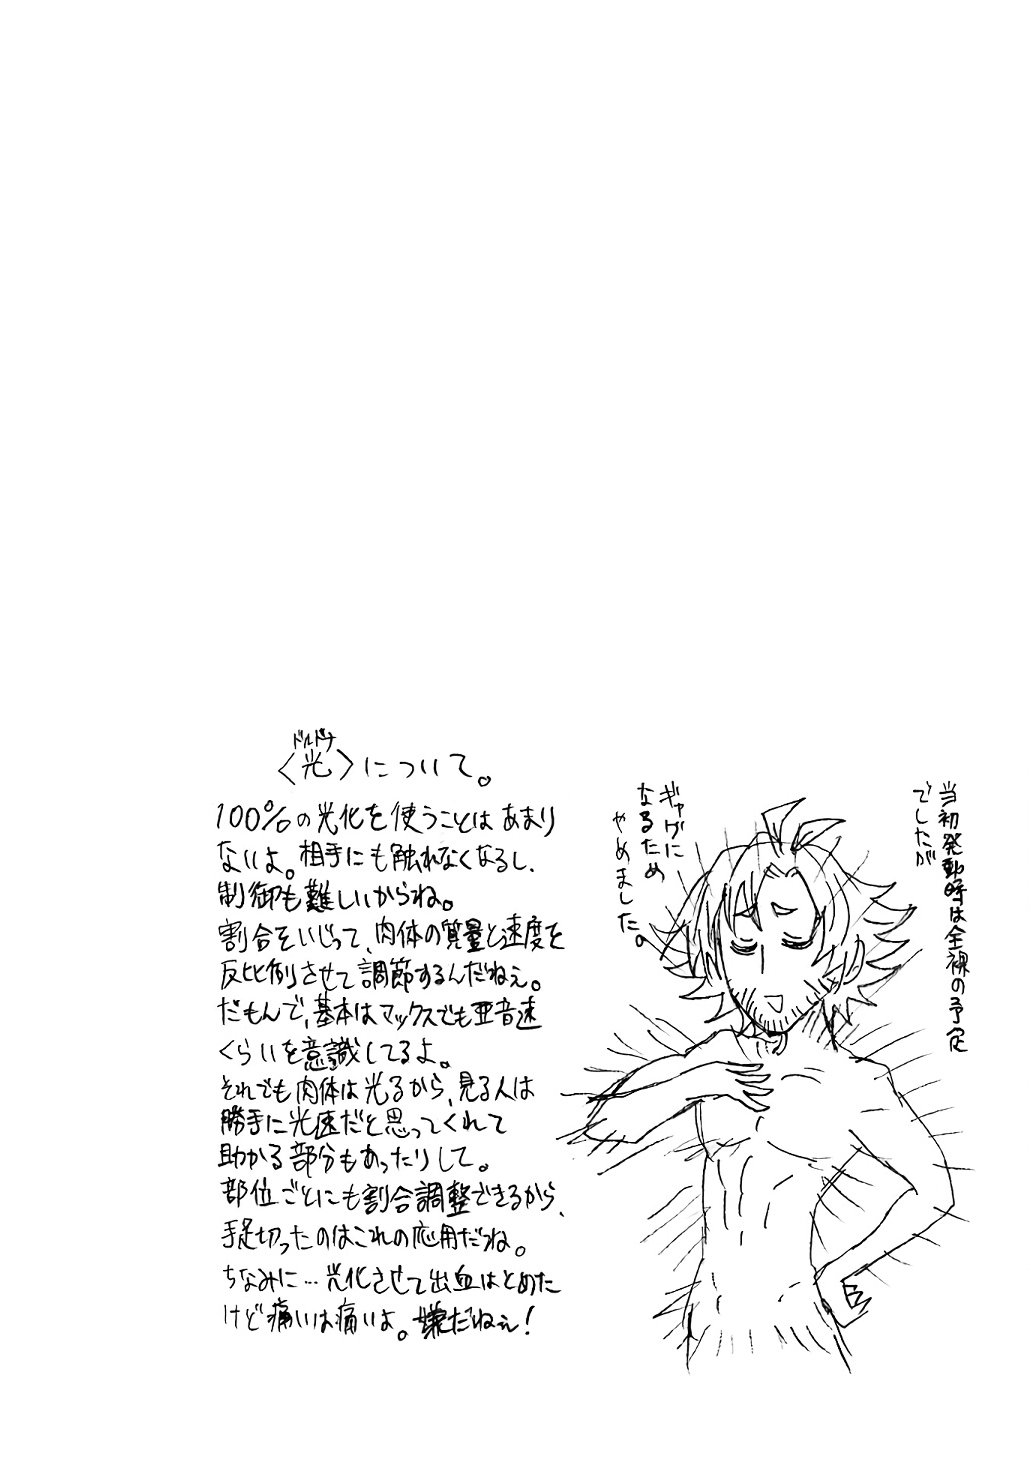 当初発動時は全裸の予定
でしたが
ギャグに
なるため
やめました。
ドルドナ
〈光〉について。
100%の光化を使うことはあまり
ないよ。相手にも触れなくなるし、
制御も難しいからね。
割合をいじって、肉体の質量と速度を
反比例させて調節するんだねぇ。
だもんで、基本はマックスでも亜音速
くらいを意識してるよ。
それでも肉体は光るから、見る人は
勝手に光速だと思ってくれて
助かる部分もあったりして。
部位ごとにも割合調整できるから、
手足切ったのはこれの応用だね。
ちなみに…光化させて出血はとめた
けど痛いは痛いよ。嫌だねぇ!